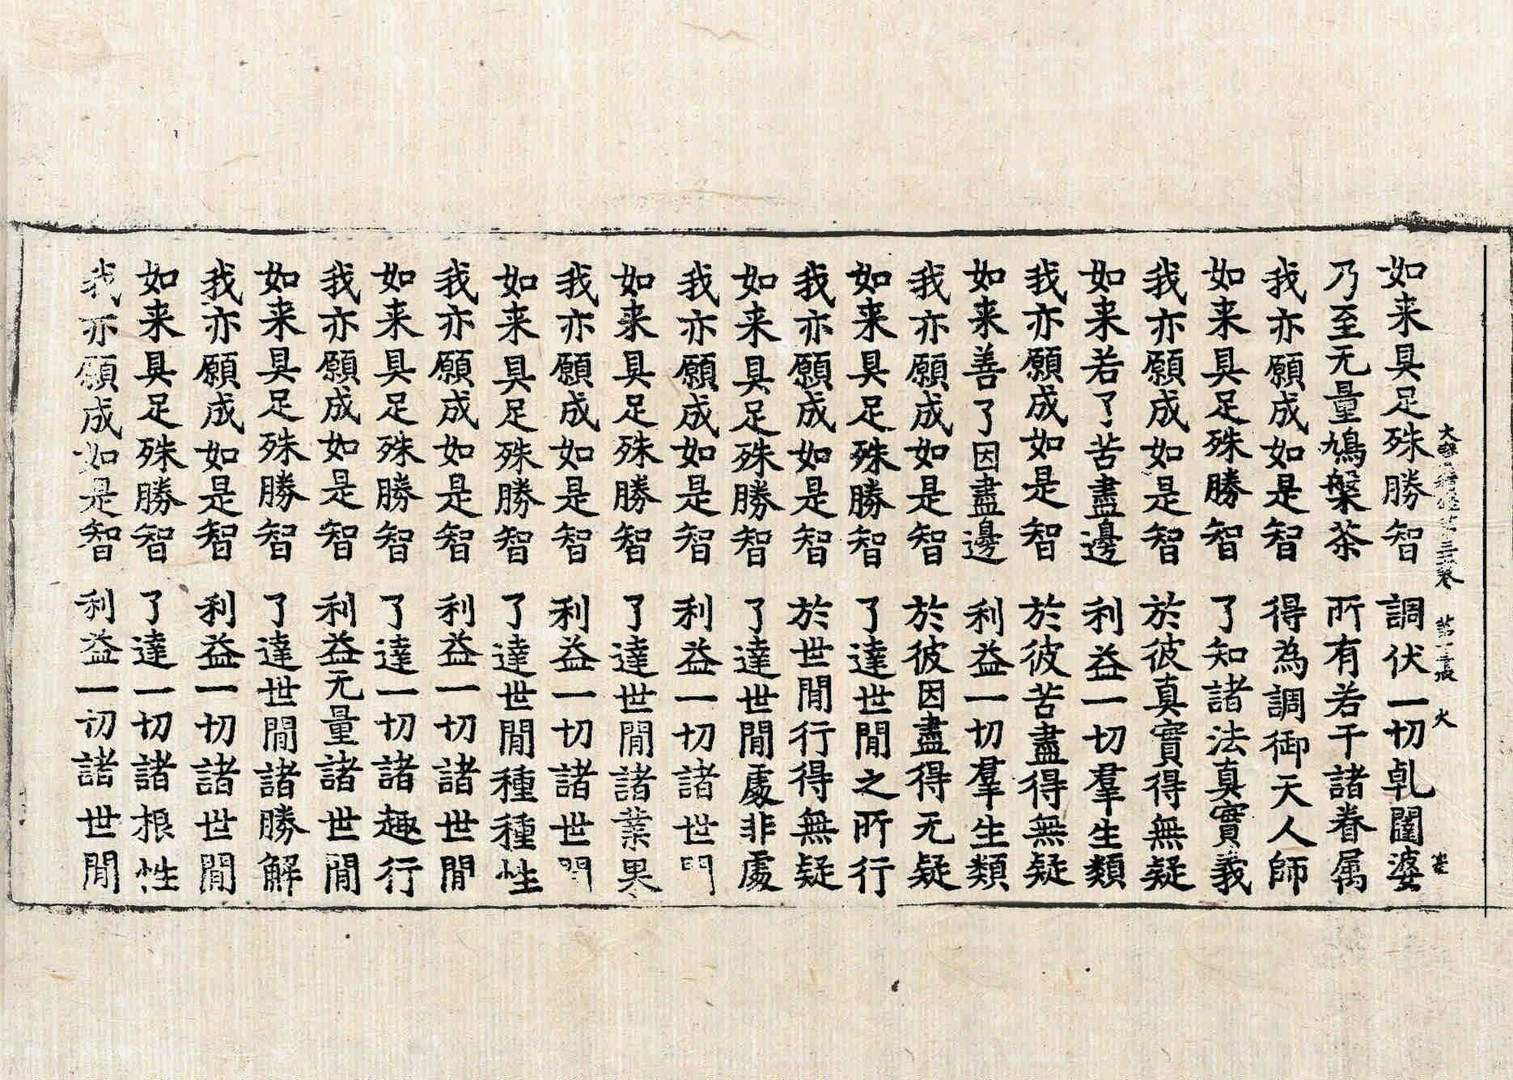 如来具足殊勝智 調伏一切乹闥婆
乃至无量鳩槃茶 所有若干諸眷属
我亦願成如是智 得為調御天人師
如来具足殊勝智 了知諸法真實義
我亦願成如是智 於彼真實得無疑
如来若了苦盡邊 利益一切羣生類
我亦願成如是智 於彼苦盡得無疑
如来善了因盡邊 利益一切羣生類
我亦願成如是智 於彼因盡得无疑
如来具足殊勝智 了達世閒之所行
我亦願成如是智 於世閒行得無疑
如来具足殊勝智 了達世閒處非處
我亦願成如是智 利益一切諸世閒
如来具足殊勝智 了達世閒諸業果
我亦願成如是智 利益一切諸世閒
如来具足殊勝智 了達世閒種種性
我亦願成如是智 利益一切諸世閒
如来具足殊勝智 了達一切諸趣行
我亦願成如是智 利益无量諸世閒
如来具足殊勝智 了達世閒諸勝解
我亦願成如是智 利益一切諸世閒
如来具足殊勝智 了達一切諸根性
我亦願成如是智 利益一切諸世閒